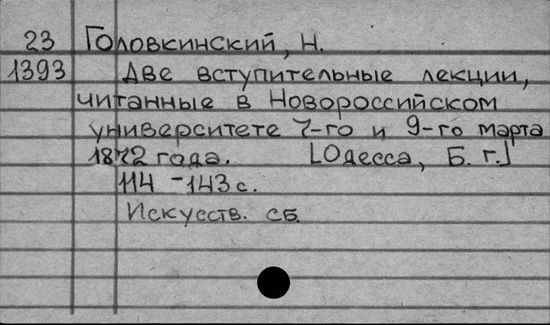 23 Головкинский, Н.
1393 Две вступительные лекции,
читанные в Новороссийском
университете 7-го и 9-го марта
1872 года. [Одесса, Б. г.]
114 - 143 с.
Искусств. сб.